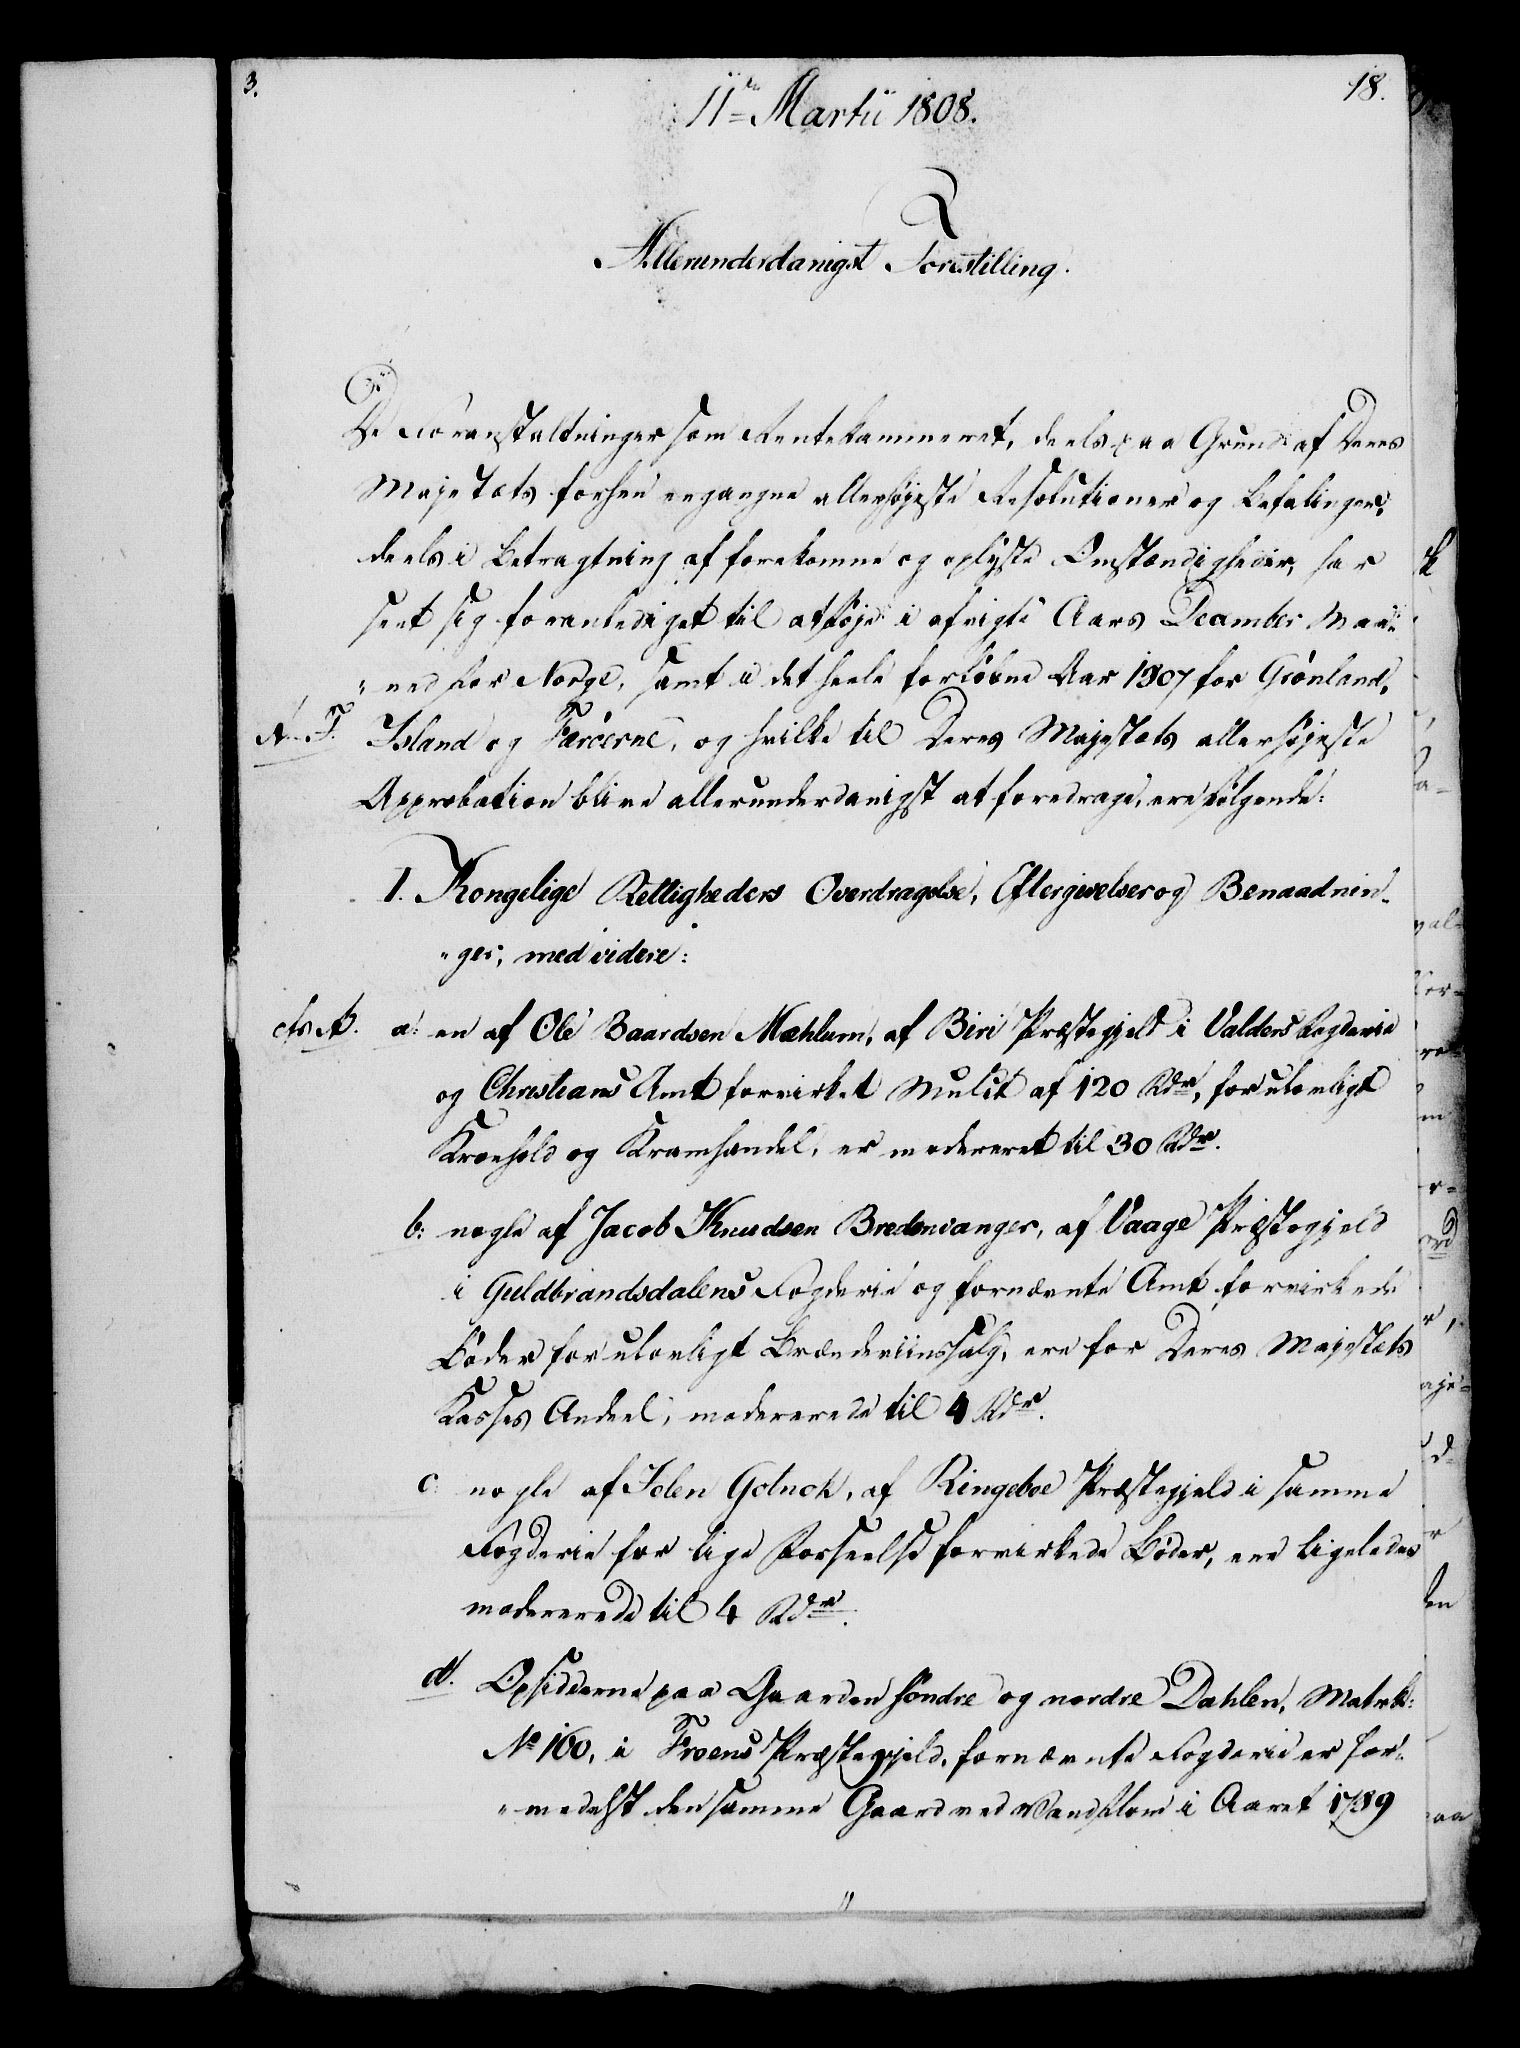 3.
18.
11te Martii 1808.
Allerunderdanigst Forestilling.
De Foranstaltninger som Rentekammeret, deels paa Grund af Deres
Majestæts forhen ergangne allerhøjeste Resolutioner og Befalinger,
deels i Betragtning af forekomne og oplyste Omstændigheder, har
seet sig foranlediget til at føje i afvigte Aars December Maa-
"ned for Norge, samt i det heele forløbne Aar 1807 for Grønland,
Island og Færøerne, og hvilke til Deres Majestæts allerhøjeste
Approbation blive allerunderdanigst at foredrage, ere følgende:
1. Kongelige Rettigheders Overdragelse, Eftergivelser og Benaadnin-
"ger, med videre:
a: en af Ole Baardsen Mæhlum, af Biri Præstegjeld i Valders Fogderie
og Christians Amt forvirket Mulct af 120 Rdr, for ulovligt
Kroehold og Kramhandel, er modereret til 30 Rdr.
b: nogle af Jacob Knudsen Bredenvanger, af Vaage Præstegjeld
i Guldbrandsdalens Fogderie og fornævnte Amt forvirkede
Bøder for ulovligt Brændeviinssalg, ere for Deres Majestæts
Kasses Andeel, modererede til 4 Rdr.
c: nogle af Iden Golnok, af Ringeboe Præstegjeld i samme
Fogderie for lige Forseelse forvirkede Bøder, ere ligeledes
modererede til 4 Rdr.
d. Opsidderne paa Gaarden søndre og nordre Dahlen, Matrk:
No 160, i Froens Præstegjeld, fornævnte Fogderie er for-
"medelst den samme Gaard ved Vandflom i Aaret 1789